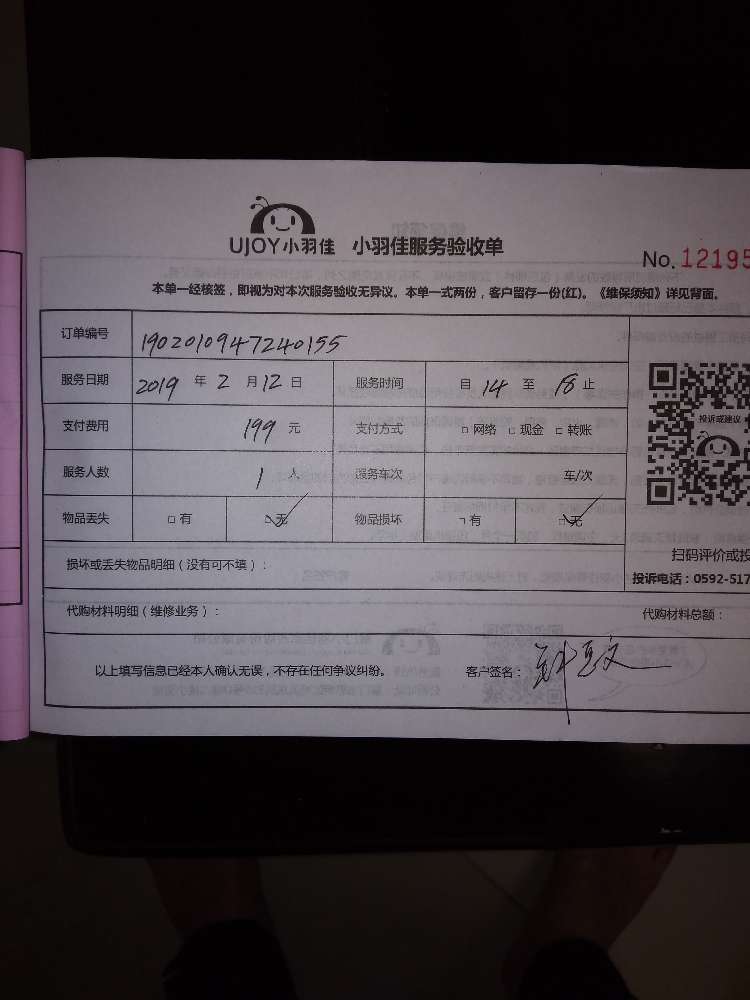 UJOY小羽佳 小羽佳服务验收单
No. 12195
本单一经核签，即视为对本次服务验收无异议。本单一式两份，客户留存一份(红)。《维保须知》详见背面。
订单编号 1902010947240155
服务日期 2019 年 2 月 12 日 服务时间 自 14 至 18 止
投诉或建议
支付费用 199 元 支付方式 □ 网络 □ 现金 □ 转账
服务人数 1 人 服务车次 车/次
物品丢失 □ 有 □ 无 物品损坏 □ 有 □ 无
扫码评价或投
损坏或丢失物品明细（没有可不填）：
投诉电话：0592-517
代购材料明细（维修业务）：
代购材料总额：
以上填写信息已经本人确认无误，不存在任何争议纠纷。 客户签名：